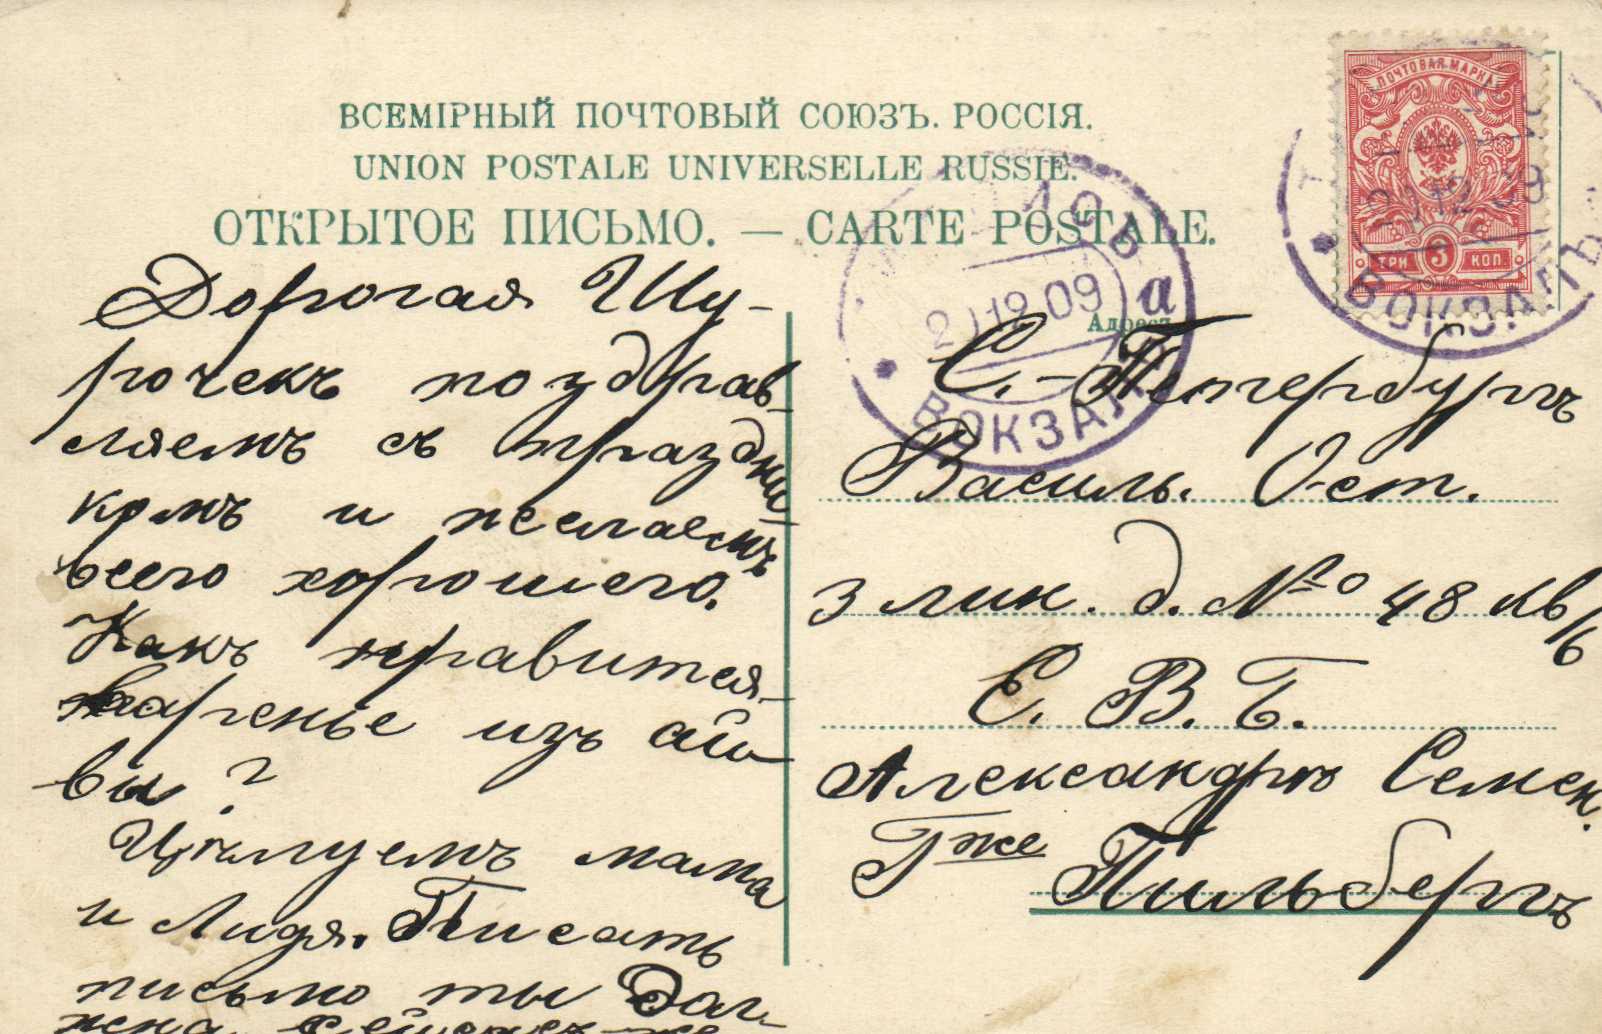 ВСЕМІРНЫЙ ПОЧТОВЫЙ СОЮЗЪ. РОССІЯ.
UNION POSTALE UNIVERSELLE RUSSIE.
ОТКРЫТОЕ ПИСЬМО. — CARTE POSTALE.
ПОЧТОВАЯ МАРКА
3
ТРИ КОП.
ВОКЗАЛЪ
12 09
а
ВОКЗАЛ
Адресъ
Дорогая Шу-
рочекъ поздрав-
ляемъ съ праздни-
комъ и желаемъ
всего хорошего.
Какъ нравится-
варенье изъ ай-
вы?
Цѣлуемъ мама
и Лидя. Писать
письмо ты дол-
жна
С.-Петербургъ
Василь. Ост.
3 лин. д. № 48 кв/6
Е. В. Б.
Александрѣ Семен.
Гже Пильбергъ